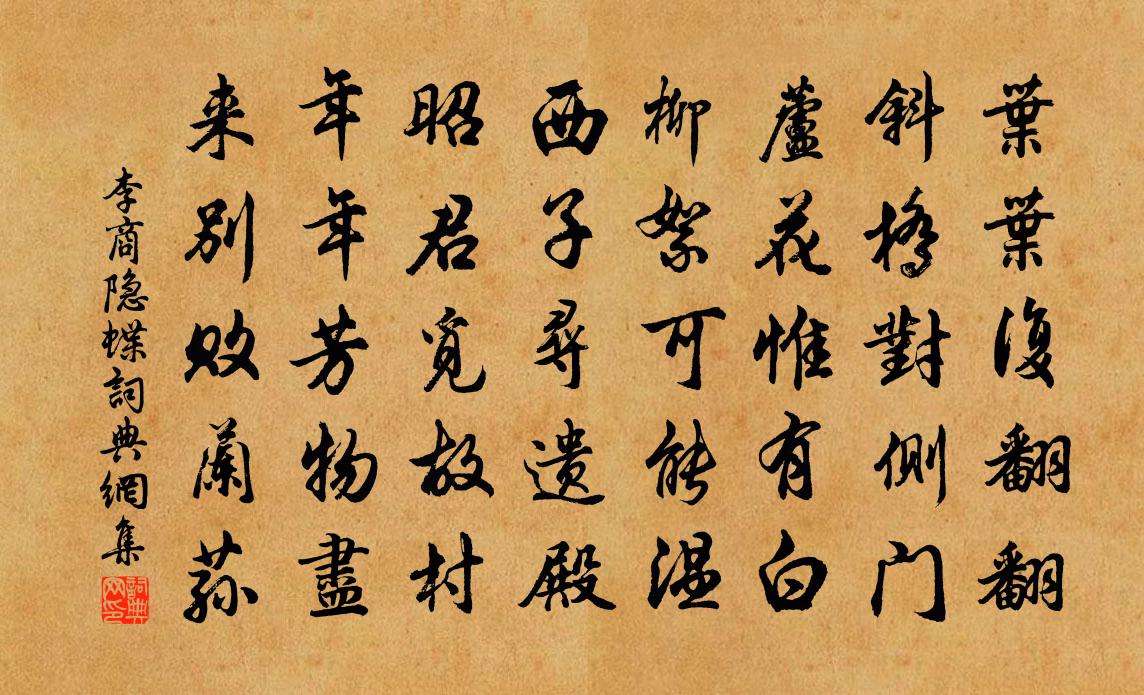 葉葉復翻翻
斜橋對側门
蘆花惟有白
柳絮可能温
西子尋遗殿
昭君覓故村
年年芳物盡
来别败蘭荪
李商隐蝶詞典網集
詞典网印